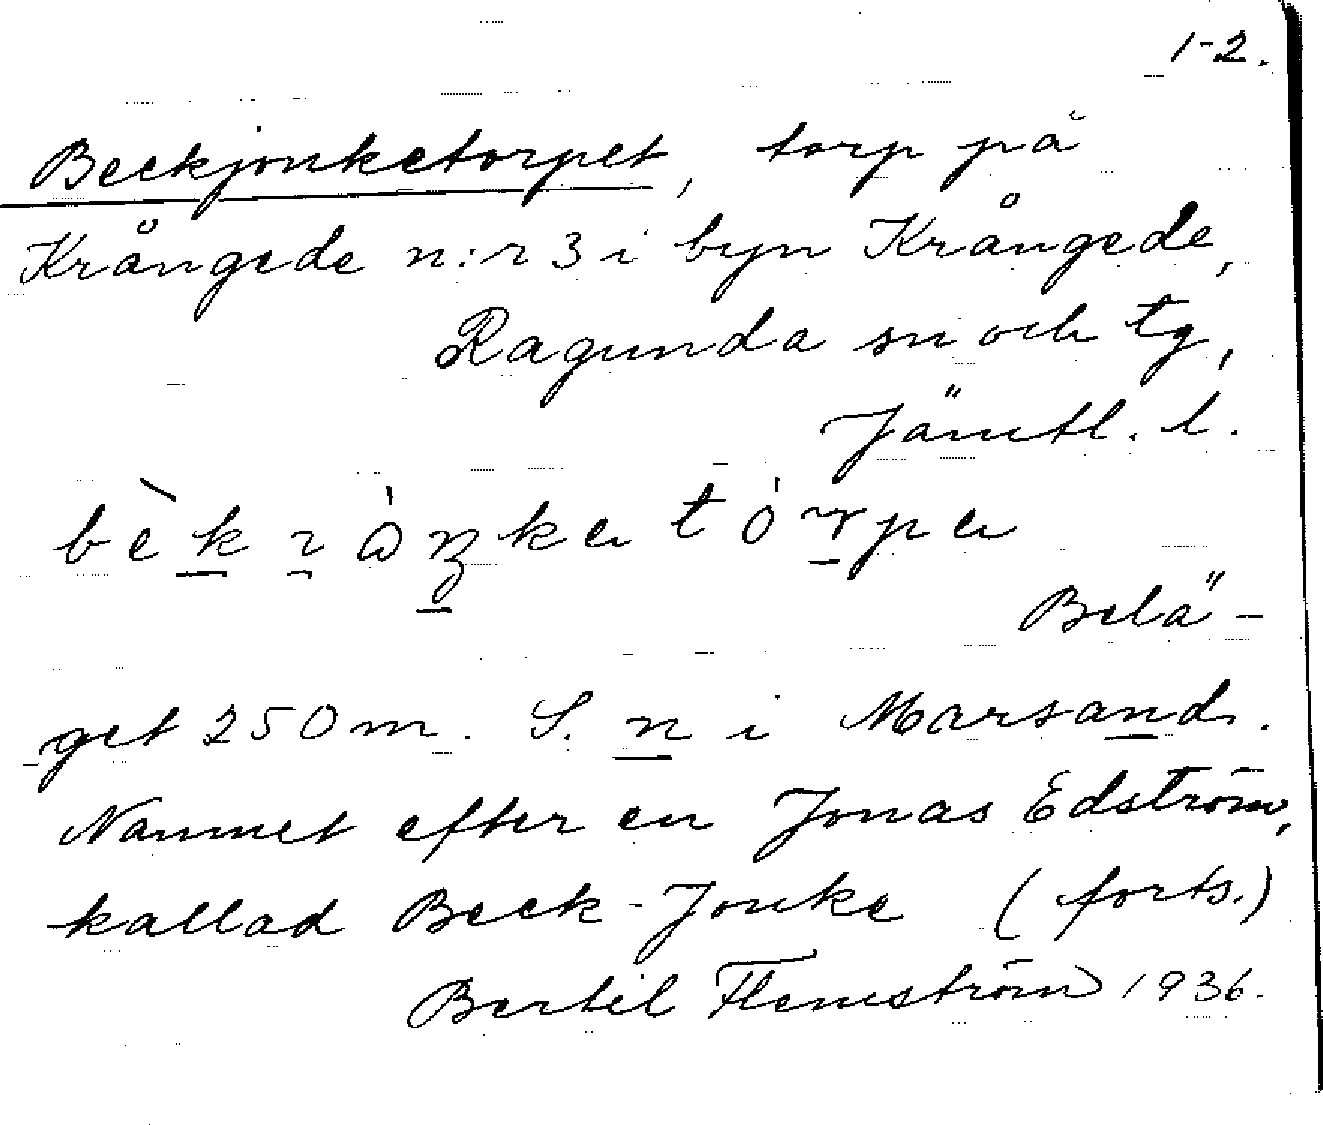 1-2.
Beckjonketorpet, torp på
Krångede n:r 3 i byn Krångede,
Ragunda sn och tg,
Jämtl. l.
Belä-
get 250 m. S. n i Marsand.
Namnet efter en Jonas Edström,
kallad Beck-Jonke (forts.)
Bertil Flemström 1936.